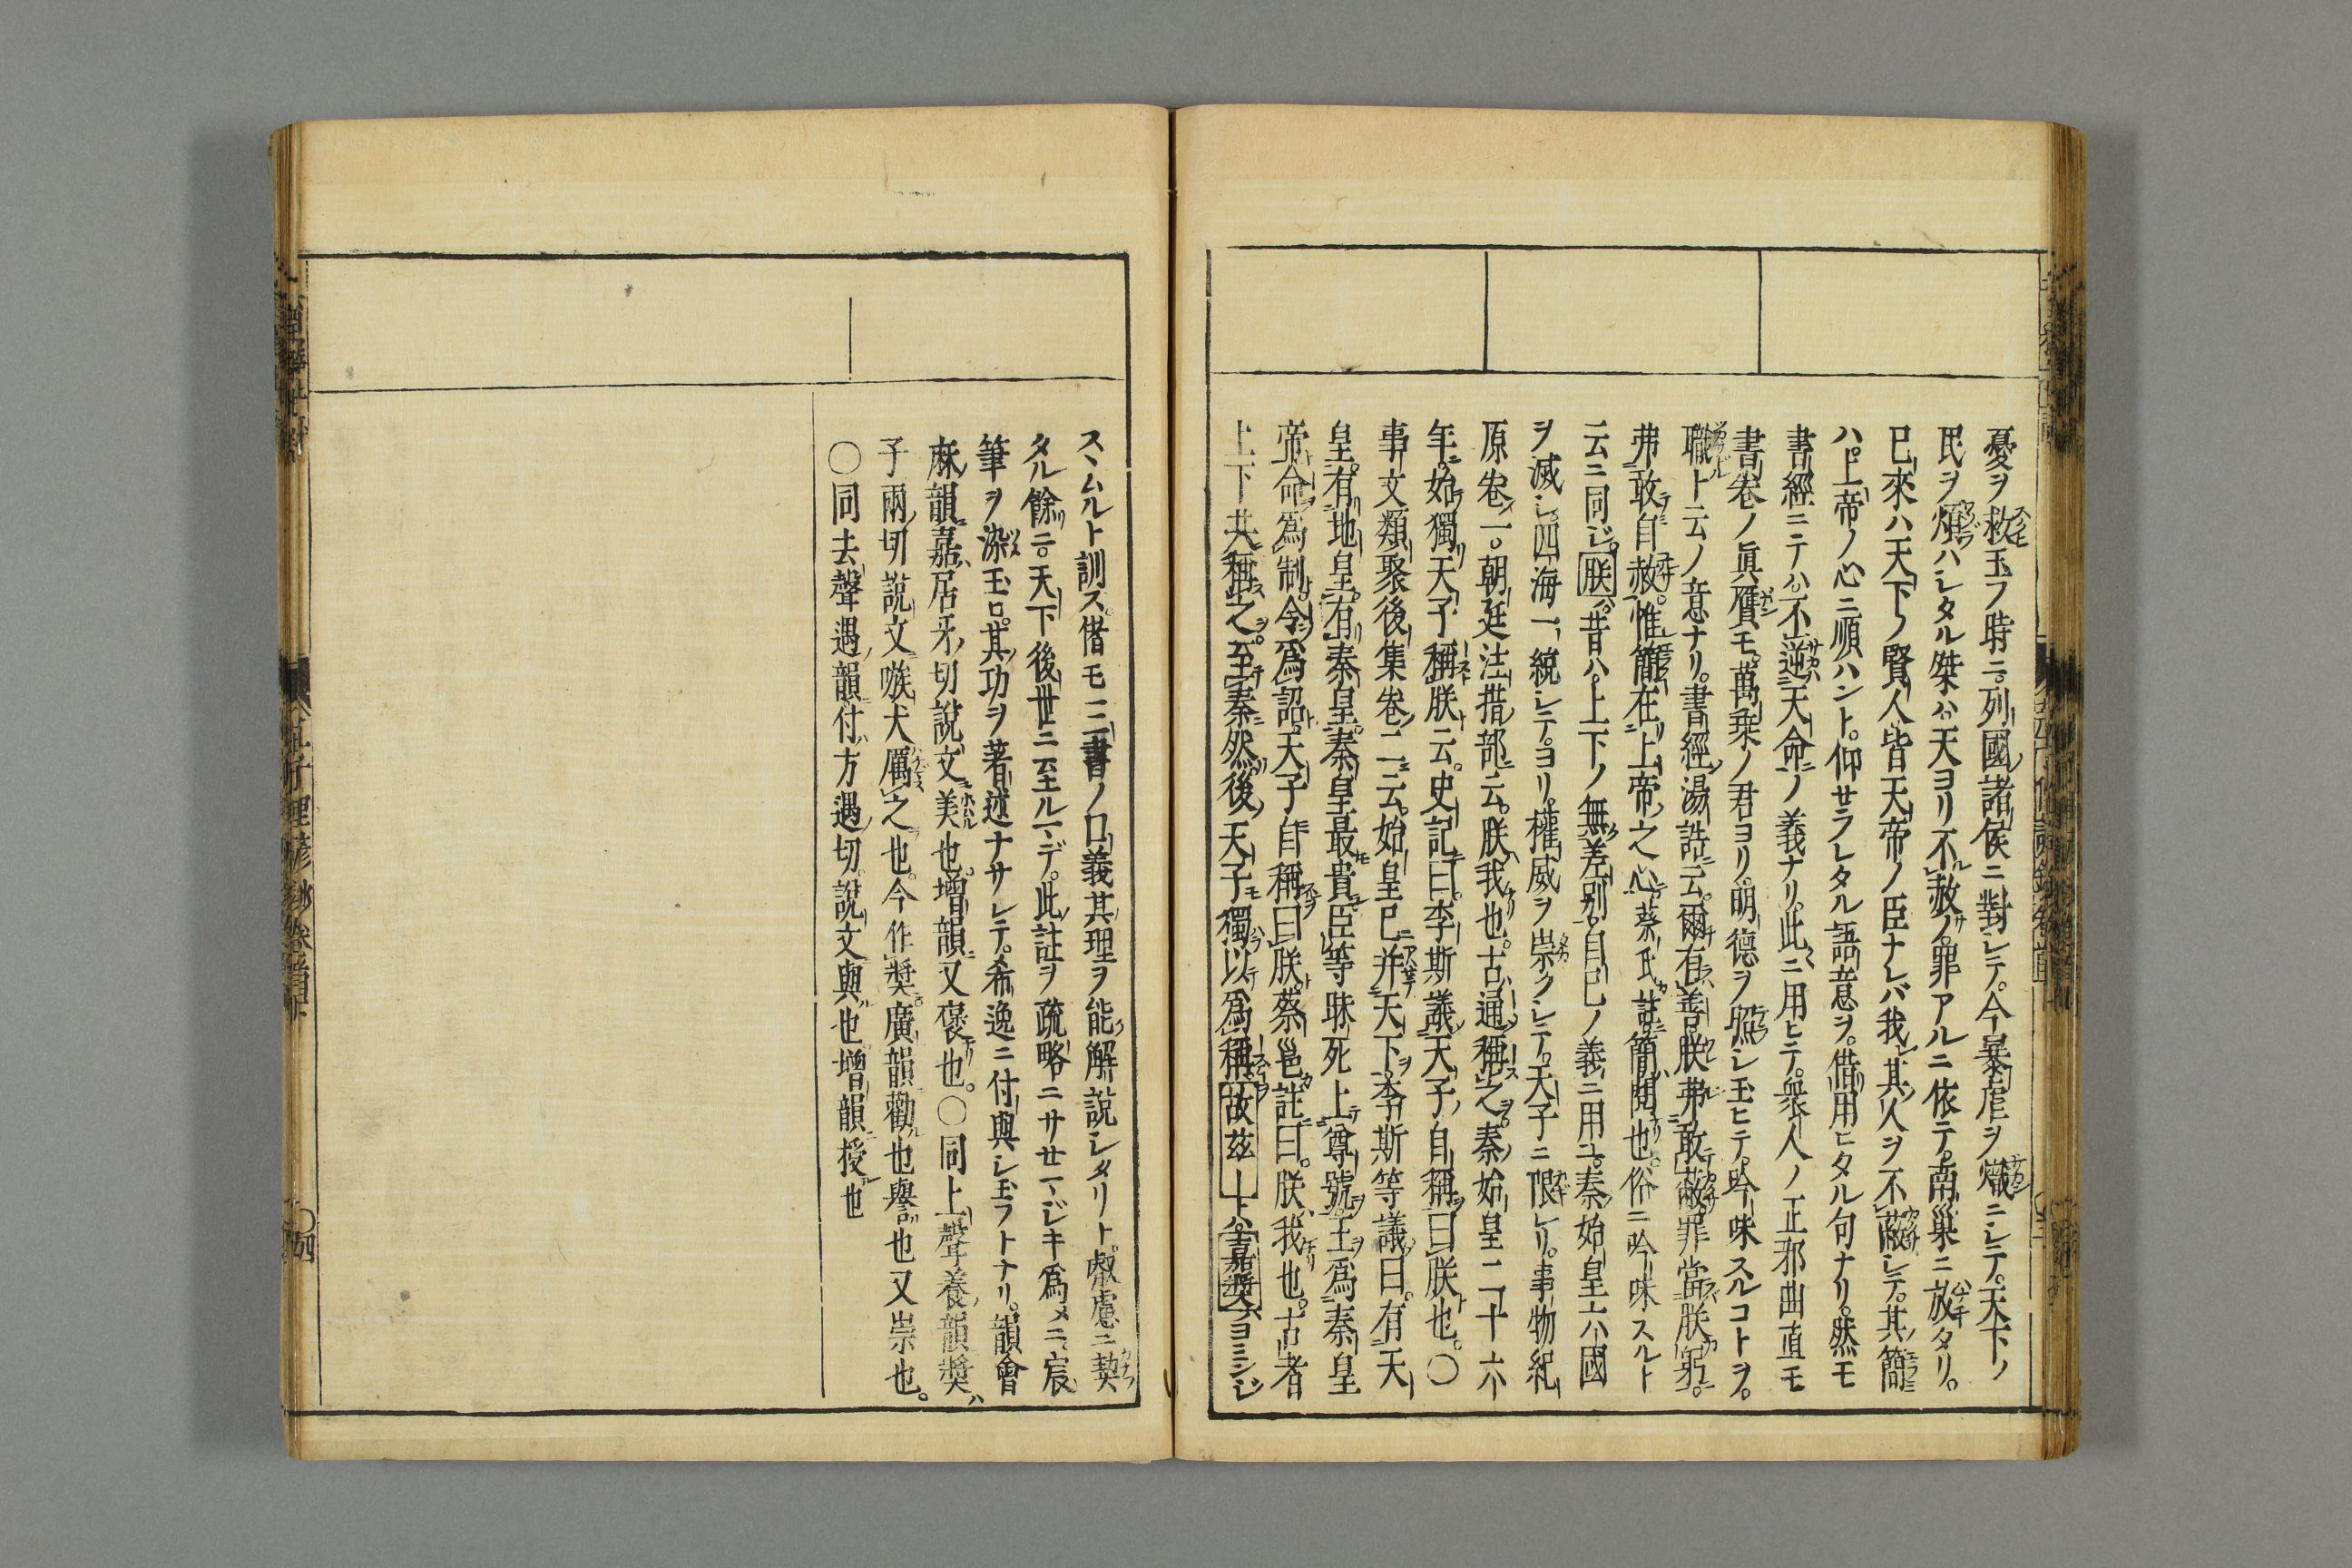 憂ヲ救玉フ時ニ。列國ノ諸侯ニ對シテ。今暴虐ヲ熾ニシテ。天下ノ
民ヲ煩ハシタル桀ハ。天ヨリ不赦ノ罪アルニ依テ。南巢ニ放タリ。
已來ハ天下ノ賢人皆天帝ノ臣ナレバ我其人ヲ不蔽シテ。其簡
ハ。上帝ノ心ニ順ハント。仰セラレタル語意ヲ。借用ヒタル句ナリ。然モ
書經ニテハ。不逆天命ノ義ナリ。此ニ用ヒテ。衆人ノ正邪曲直モ
書卷ノ眞贋モ。萬乗ノ君ヨリ。明德ヲ照シ玉ヒテ。吟味スルコトヲ。
職ト云ノ意ナリ。書經湯誥云。爾有善朕弗敢蔽罪當朕躬。
弗敢自赦。惟簡在上帝之心蔡氏註簡閲也。俗ニ吟味スルト
云ニ同ジ。朕ハ。昔ハ。上下ノ無差別。自己ノ義ニ用ユ。秦始皇六國
ヲ滅シ。四海一統シテ。ヨリ。權威ヲ崇クシテ。天子ニ限レリ。事物紀
原卷一。朝廷注措部云。朕我也。古通稱之。秦始皇二十六
年。始獨天子稱朕云。史記曰。李斯議天子自稱曰朕也。〇
事文類聚後集卷二云。始皇已并天下。李斯等議曰。有天
皇。有地皇。有秦皇。秦皇最貴。臣等昧死上尊號。王爲秦皇
帝。命爲制。令爲詔。天子自稱曰朕。蔡邕註曰。朕我也。古者
上下共稱之。至秦然後天子獨以爲稱故茲トハ。嘉奬ハヨミンジ
スヽムルト訓ス。借モ三書ノ口義其理ヲ能解說シタリト。叡慮ニ契
タル餘ニ。天下後世ニ至ルマデ。此註ヲ疏略ニサセマジキ爲メニ。宸
筆ヲ染玉ヒ。其功ヲ著述ナサレテ。希逸ニ付與シ玉フトナリ。韻會
麻韻嘉居牙切說文美也。增韻又褒也。〇同上聲養韻奬ハ
子兩切說文嗾犬厲之也。今作奬。廣韻勸也譽也又崇也。
〇同去聲遇韻付方遇切。說文與也增韻授也